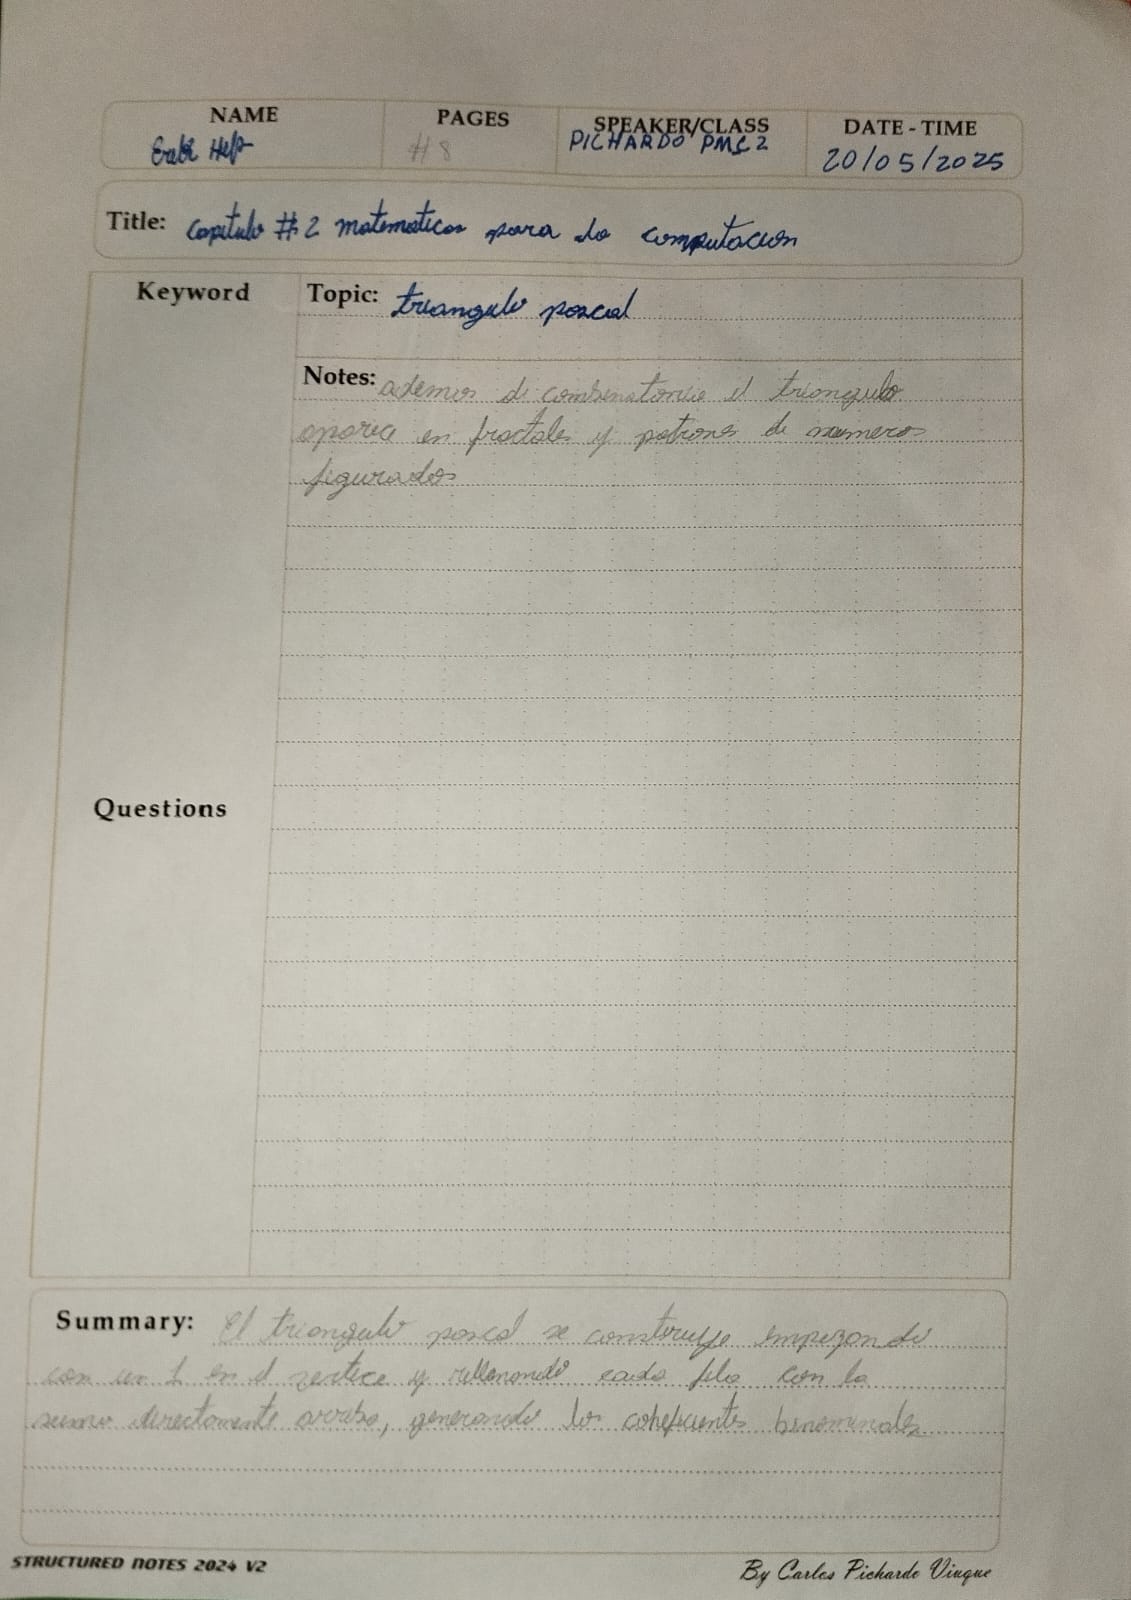 NAME
PAGES
SPEAKER/CLASS
DATE - TIME
# 8
PICHARDO PMC2
20/05/2025
Title: Capitulo #2 matematicas para la computacion
Keyword
Topic: triangulo pascal
Notes: ademas de combinatoria el triangulo
aparece en fractales y patrones de numeros
figurados
Questions
Summary: El triangulo pascal se construye empezando
con un 1 en el vertice y rellenando cada fila con la
suma directamente arriba, generando los coheficientes binominales
STRUCTURED NOTES 2024 V2
By Carlos Pichardo Viuque